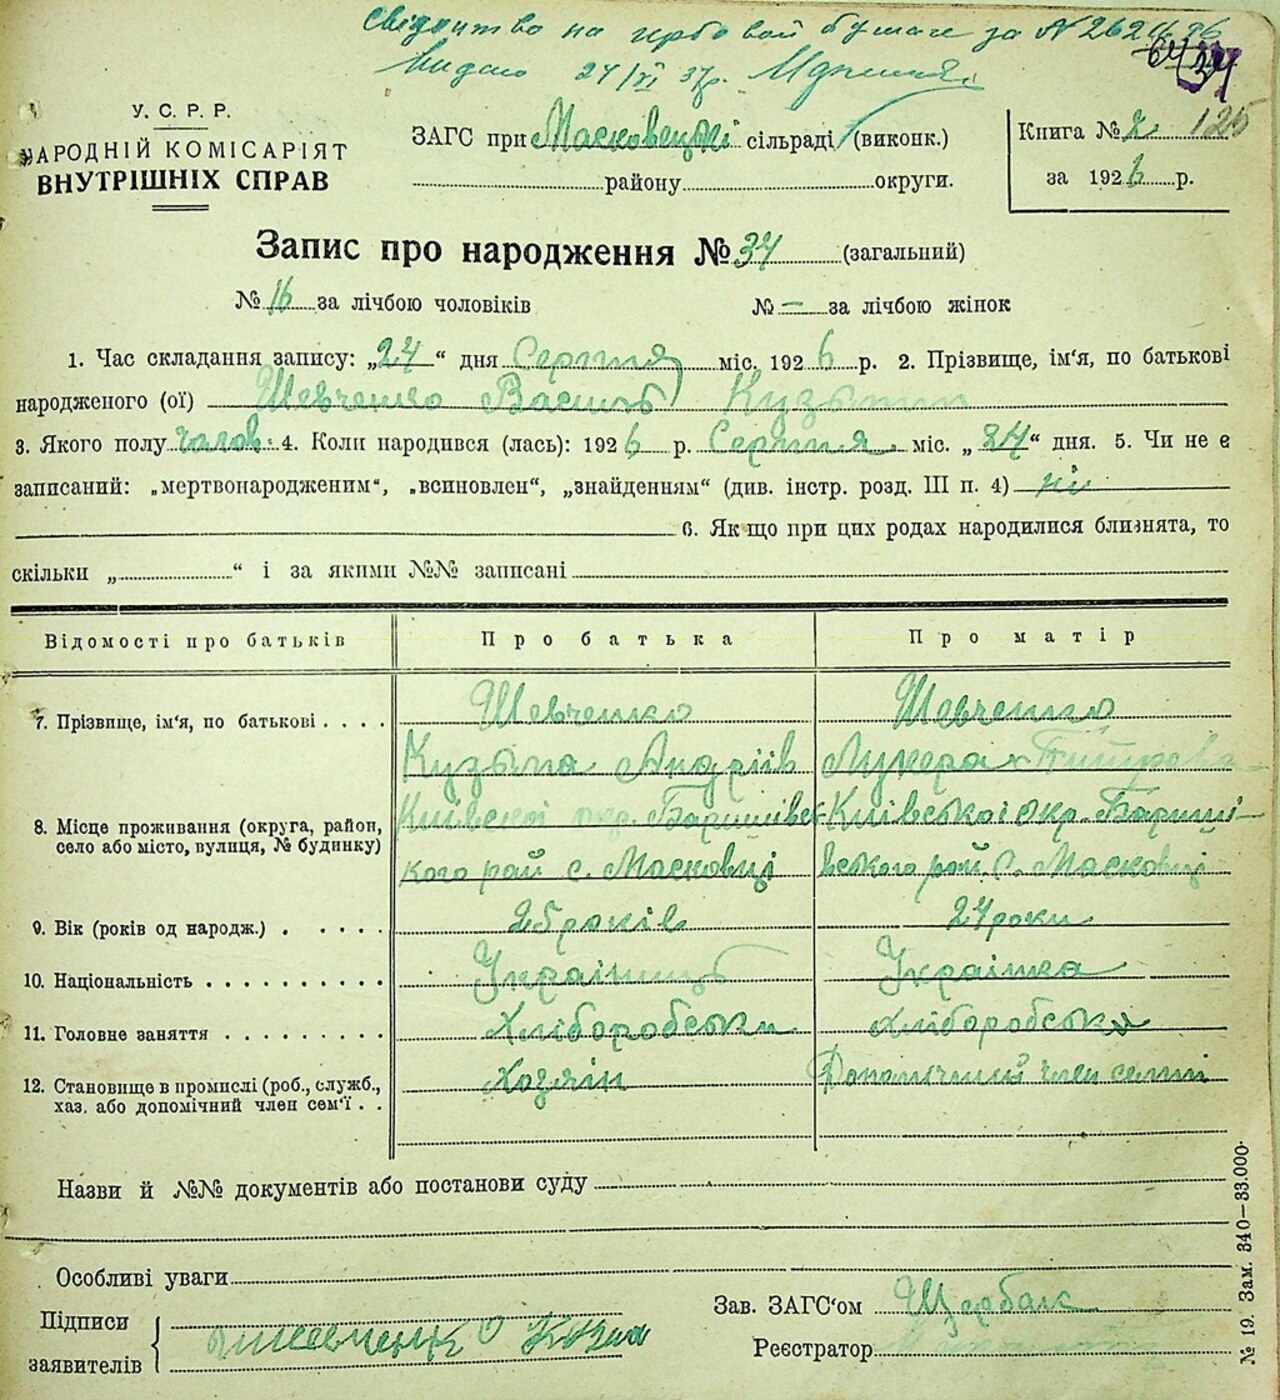 Свідоцтво на гербовой бумаге за №
Видано 24/VI 37р.
64 34
125
У. С. Р. Р.
НАРОДНІЙ КОМІСАРІЯТ
ВНУТРІШНІХ СПРАВ
ЗАГС при Масковецькі сільраді (виконк.)
району округи.
Книга № 2
за 1926 р.
Запис про народження № 34 (загальний)
№ 16 за лічбою чоловіків № — за лічбою жінок
1. Час складання запису: „24“ дня Серпня міс. 1926 р. 2. Прізвище, ім'я, по батькові
народженого (ої) Шевченко Василь Кузьмич
3. Якого полу чолов. 4. Коли народився (лась): 1926 р. Серпня міс. „24“ дня. 5. Чи не є
записаний: „мертвонародженим“, „всиновлен“, „знайденням“ (див. інстр. розд. III п. 4) ні
6. Як що при цих родах народилися близнята, то
скільки „ “ і за якими №№ записані
Відомості про батьків Про батька Про матір
7. Прізвище, ім'я, по батькові . . . . Шевченко Шевченко
Кузьма Андріїв Лукера
8. Місце проживання (округа, район, село або місто, вулиця, № будинку) Київської окр. Баришівсь- Київської окр. Бариші-
кого рай с. Масковці вського рай. с. Масковці
9. Вік (років од народж.) . . . . . 25 років 24 роки
10. Національність . . . . . . . . . . Українець Українка
11. Головне заняття . . . . . . . . . Хліборобськи Хліборобська
12. Становище в промислі (роб., служб., хаз. або допомічний член сем'ї . . Хозяін Допомічний член семи
Назви й №№ документів або постанови суду
Особливі уваги
Підписи
заявителів Шевченко Кузма
Зав. ЗАГС'ом Щербак
Реєстратор
№ 19. Зам. 340—33.000.